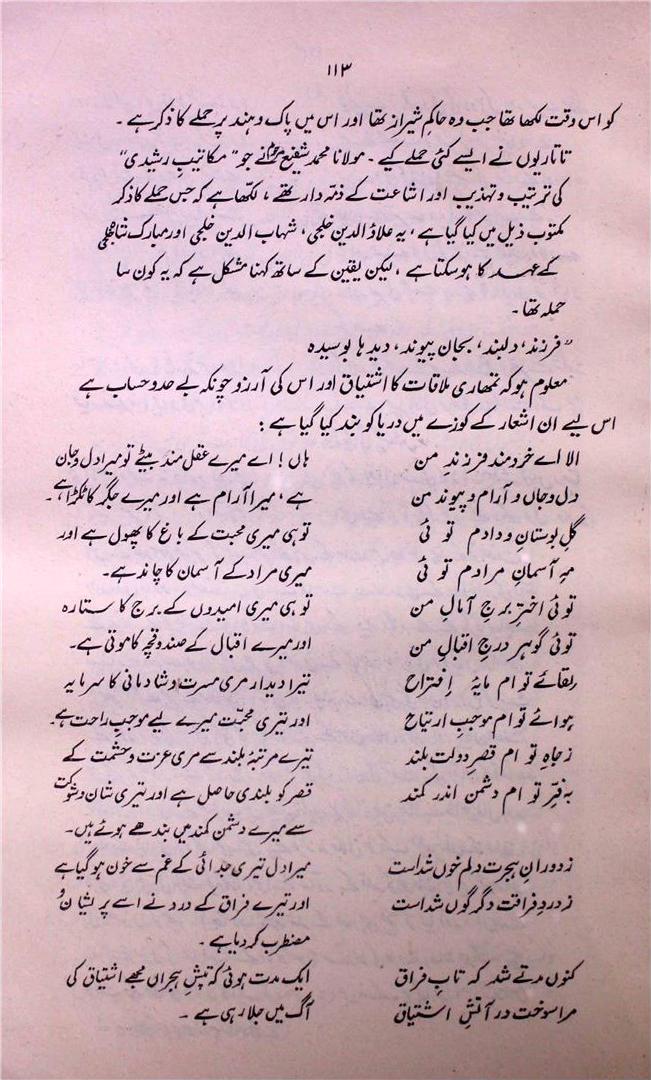 ۱۱۳
کو اس وقت لکھا تھا جب وہ حاکمِ شیراز تھا اور اس میں پاک و ہند پر حملے کا ذکر ہے ۔
تاتاریوں نے ایسے کئی حملے کیے ۔ مولانا محمد شفیع مرحوم نے جو "مکاتیبِ رشیدی"
کی ترتیب و تہذیب اور اشاعت کے ذمّہ دار تھے ، لکھا ہے کہ جس حملے کا ذکر
مکتوب ذیل میں کیا گیا ہے ، یہ علاؤ الدین خلجی ، شہاب الدین خلجی اور مبارک شاہ خلجی
کے عہد کا ہو سکتا ہے ، لیکن یقین کے ساتھ کہنا مشکل ہے کہ یہ کون سا
حملہ تھا ۔
"فرزند ، دلبند ، بجان پیوند ، دیدہا بوسیدہ
معلوم ہو کہ تمھاری ملاقات کا اشتیاق اور اس کی آرزو چونکہ بے حد و حساب ہے
اس لیے ان اشعار کے کوزے میں دریا کو بند کیا گیا ہے :
الا اے خردمند فرزندِ من ہاں! اے میرے عقل مند بیٹے تو میرا دل و جان
دل و جاں و آرام و پیوند من ہے ، میرا آرام ہے اور میرے جگر کا ٹکڑا ہے ۔
گلِ بوستانِ ودادم تو ئی تو ہی میری محبت کے باغ کا پھول ہے اور
مہِ آسمانِ مرادم تو ئی میری مراد کے آسمان کا چاند ہے ۔
تو ئی اخترِ برجِ آمالِ من تو ہی میری امیدوں کے برج کا ستارہ
توئی گوہر درجِ اقبالِ من اور میرے اقبال کے صندوقچہ کا موتی ہے ۔
بلقائے تو ام مایۂ افتراح تیرا دیدار مری مسرت و شادمانی کا سرمایہ
ہوائے تو ام موجبِ ارتیاح اور تیری محبّت میرے لیے موجبِ راحت ہے ۔
ز جاہِ تو ام قصرِ دولت بلند تیرے مرتبۂ بلند سے مری عزت و حشمت کے
بہ فرِّ تو ام دشمن اندر کمند قصر کو بلندی حاصل ہے اور تیری شان و شوکت
سے میرے دشمن کمند میں بندھے ہوئے ہیں ۔
ز دورانِ ہجرت دلم خوں شداست میرا دل تیری جدائی کے غم سے خون ہو گیا ہے
ز دردِ فراقت دگر گوں شداست اور تیرے فراق کے درد نے اسے پریشان و
مضطرب کر دیا ہے ۔
کنوں مدتے شد کہ تابِ فراق ایک مدت ہوئی کہ تپشِ ہجراں مجھے اشتیاق کی
مرا سوخت در آتشِ اشتیاق آگ میں جلا رہی ہے ۔